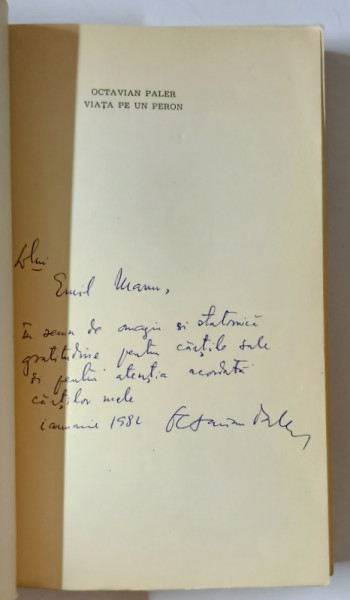 OCTAVIAN PALER
VIAȚA PE UN PERON
Dlui
Emil Manu,
în semn de omagiu și statornică
gratitudine pentru cărțile sale
și pentru atenția acordată
cărților mele
ianuarie 1982 Octavian Paler